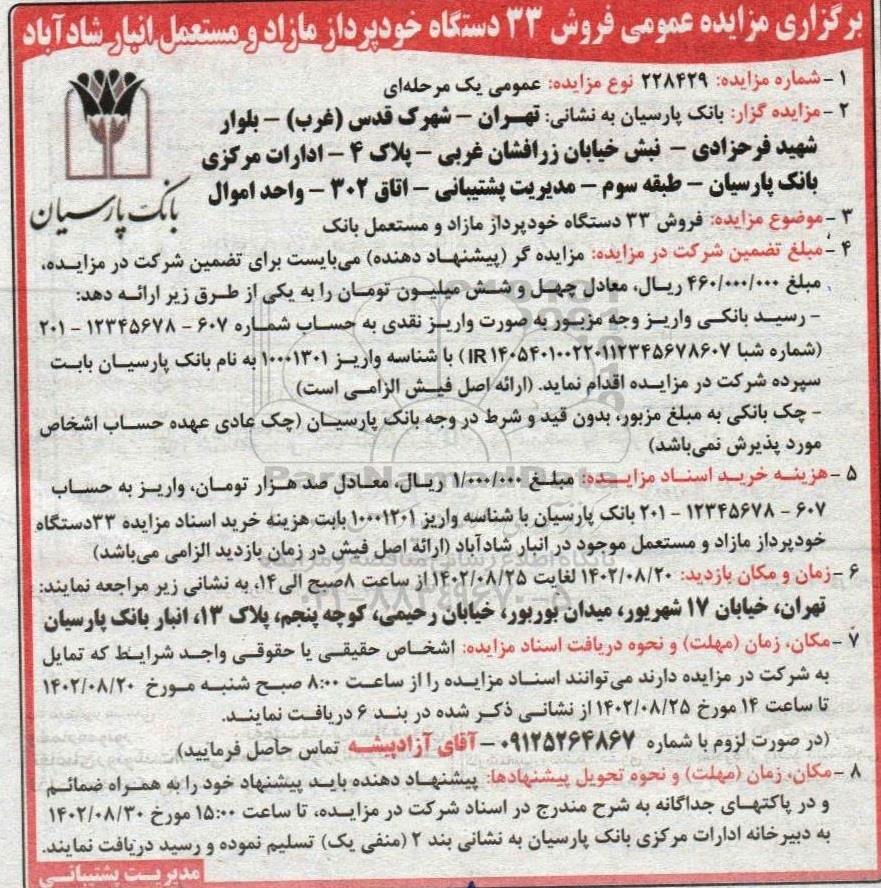 برگزاری مزایده عمومی فروش ۳۳ دستگاه خودپرداز مازاد و مستعمل انبار شادآباد
۱ - شماره مزایده: ۲۲۸۴۲۹ نوع مزایده: عمومی یک مرحله‌ای
۲ - مزایده گزار: بانک پارسیان به نشانی: تهران - شهرک قدس (غرب) - بلوار
شهید فرحزادی - نبش خیابان زرافشان غربی - پلاک ۴ - ادارات مرکزی
بانک پارسیان - طبقه سوم - مدیریت پشتیبانی - اتاق ۳۰۲ - واحد اموال
بانک پارسیان
۳ - موضوع مزایده: فروش ۳۳ دستگاه خودپرداز مازاد و مستعمل بانک
۴ - مبلغ تضمین شرکت در مزایده: مزایده گر (پیشنهاد دهنده) می‌بایست برای تضمین شرکت در مزایده،
مبلغ ۴۶۰/۰۰۰/۰۰۰ ریال، معادل چهل و شش میلیون تومان را به یکی از طرق زیر ارائه دهد:
- رسید بانکی واریز وجه مزبور به صورت واریز نقدی به حساب شماره ۶۰۷ - ۱۲۳۴۵۶۷۸ - ۲۰۱
(شماره شبا IR ۱۴۰۵۴۰۱۰۰۲۲۰۱۱۲۳۴۵۶۷۸۶۰۷) با شناسه واریز ۱۰۰۰۱۳۰۱ به نام بانک پارسیان بابت
سپرده شرکت در مزایده اقدام نماید. (ارائه اصل فیش الزامی است)
- چک بانکی به مبلغ مزبور، بدون قید و شرط در وجه بانک پارسیان (چک عادی عهده حساب اشخاص
مورد پذیرش نمی‌باشد)
ParsNamadData
۵ - هزینه خرید اسناد مزایده: مبلغ ۱/۰۰۰/۰۰۰ ریال، معادل صد هزار تومان، واریز به حساب
۶۰۷ - ۱۲۳۴۵۶۷۸ - ۲۰۱ بانک پارسیان با شناسه واریز ۱۰۰۰۱۲۰۱ بابت هزینه خرید اسناد مزایده ۳۳دستگاه
خودپرداز مازاد و مستعمل موجود در انبار شادآباد (ارائه اصل فیش در زمان بازدید الزامی می‌باشد)
۶ - زمان و مکان بازدید: ۱۴۰۲/۰۸/۲۰ لغایت ۱۴۰۲/۰۸/۲۵ از ساعت ۸صبح الی ۱۴، به نشانی زیر مراجعه نمایند:
تهران، خیابان ۱۷ شهریور، میدان بوربور، خیابان رحیمی، کوچه پنجم، پلاک ۱۳، انبار بانک پارسیان
۷ - مکان، زمان (مهلت) و نحوه دریافت اسناد مزایده: اشخاص حقیقی یا حقوقی واجد شرایط که تمایل
به شرکت در مزایده دارند می‌توانند اسناد مزایده را از ساعت ۸:۰۰ صبح شنبه مورخ ۱۴۰۲/۰۸/۲۰
تا ساعت ۱۴ مورخ ۱۴۰۲/۰۸/۲۵ از نشانی ذکر شده در بند ۶ دریافت نمایند.
(در صورت لزوم با شماره ۰۹۱۲۵۲۶۴۸۶۷ - آقای آزادپیشه تماس حاصل فرمایید)
۸ - مکان، زمان (مهلت) و نحوه تحویل پیشنهادها: پیشنهاد دهنده باید پیشنهاد خود را به همراه ضمائم
و در پاکتهای جداگانه به شرح مندرج در اسناد شرکت در مزایده، تا ساعت ۱۵:۰۰ مورخ ۱۴۰۲/۰۸/۳۰
به دبیرخانه ادارات مرکزی بانک پارسیان به نشانی بند ۲ (منفی یک) تسلیم نموده و رسید دریافت نمایند.
مدیریت پشتیبانی